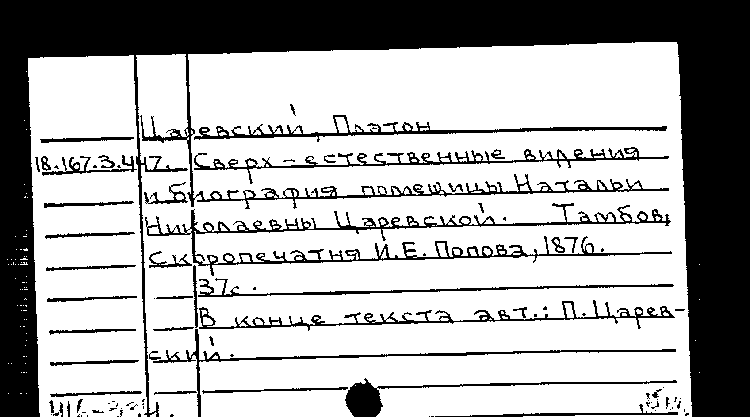 Царевский, Платон
18.167.3.447. Сверх-естественные видения
и биография помещицы Натальи
Николаевны Царевской. Тамбов,
Скоропечатня И.Е. Попова, 1876.
37с.
В конце текста авт.: П. Царев-
ский.